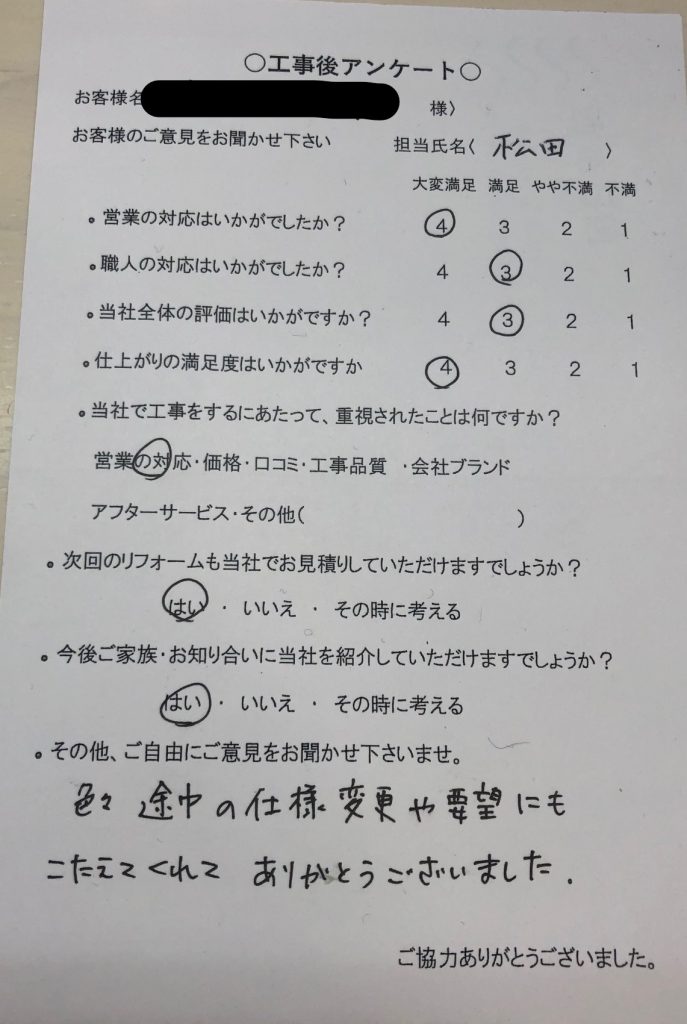 ○工事後アンケート○
お客様名 様〉
お客様のご意見をお聞かせ下さい 担当氏名〈 松田 〉
大変満足 満足 やや不満 不満
。営業の対応はいかがでしたか? 4 3 2 1
。職人の対応はいかがでしたか? 4 3 2 1
。当社全体の評価はいかがですか? 4 3 2 1
。仕上がりの満足度はいかがですか 4 3 2 1
。当社で工事をするにあたって、重視されたことは何ですか?
営業の対応・価格・口コミ・工事品質 ・会社ブランド
アフターサービス・その他( )
。次回のリフォームも当社でお見積りしていただけますでしょうか?
はい ・ いいえ ・ その時に考える
。今後ご家族・お知り合いに当社を紹介していただけますでしょうか?
はい ・ いいえ ・ その時に考える
。その他、ご自由にご意見をお聞かせ下さいませ。
色々途中の仕様変更や要望にも
こたえてくれて ありがとうございました.
ご協力ありがとうございました。